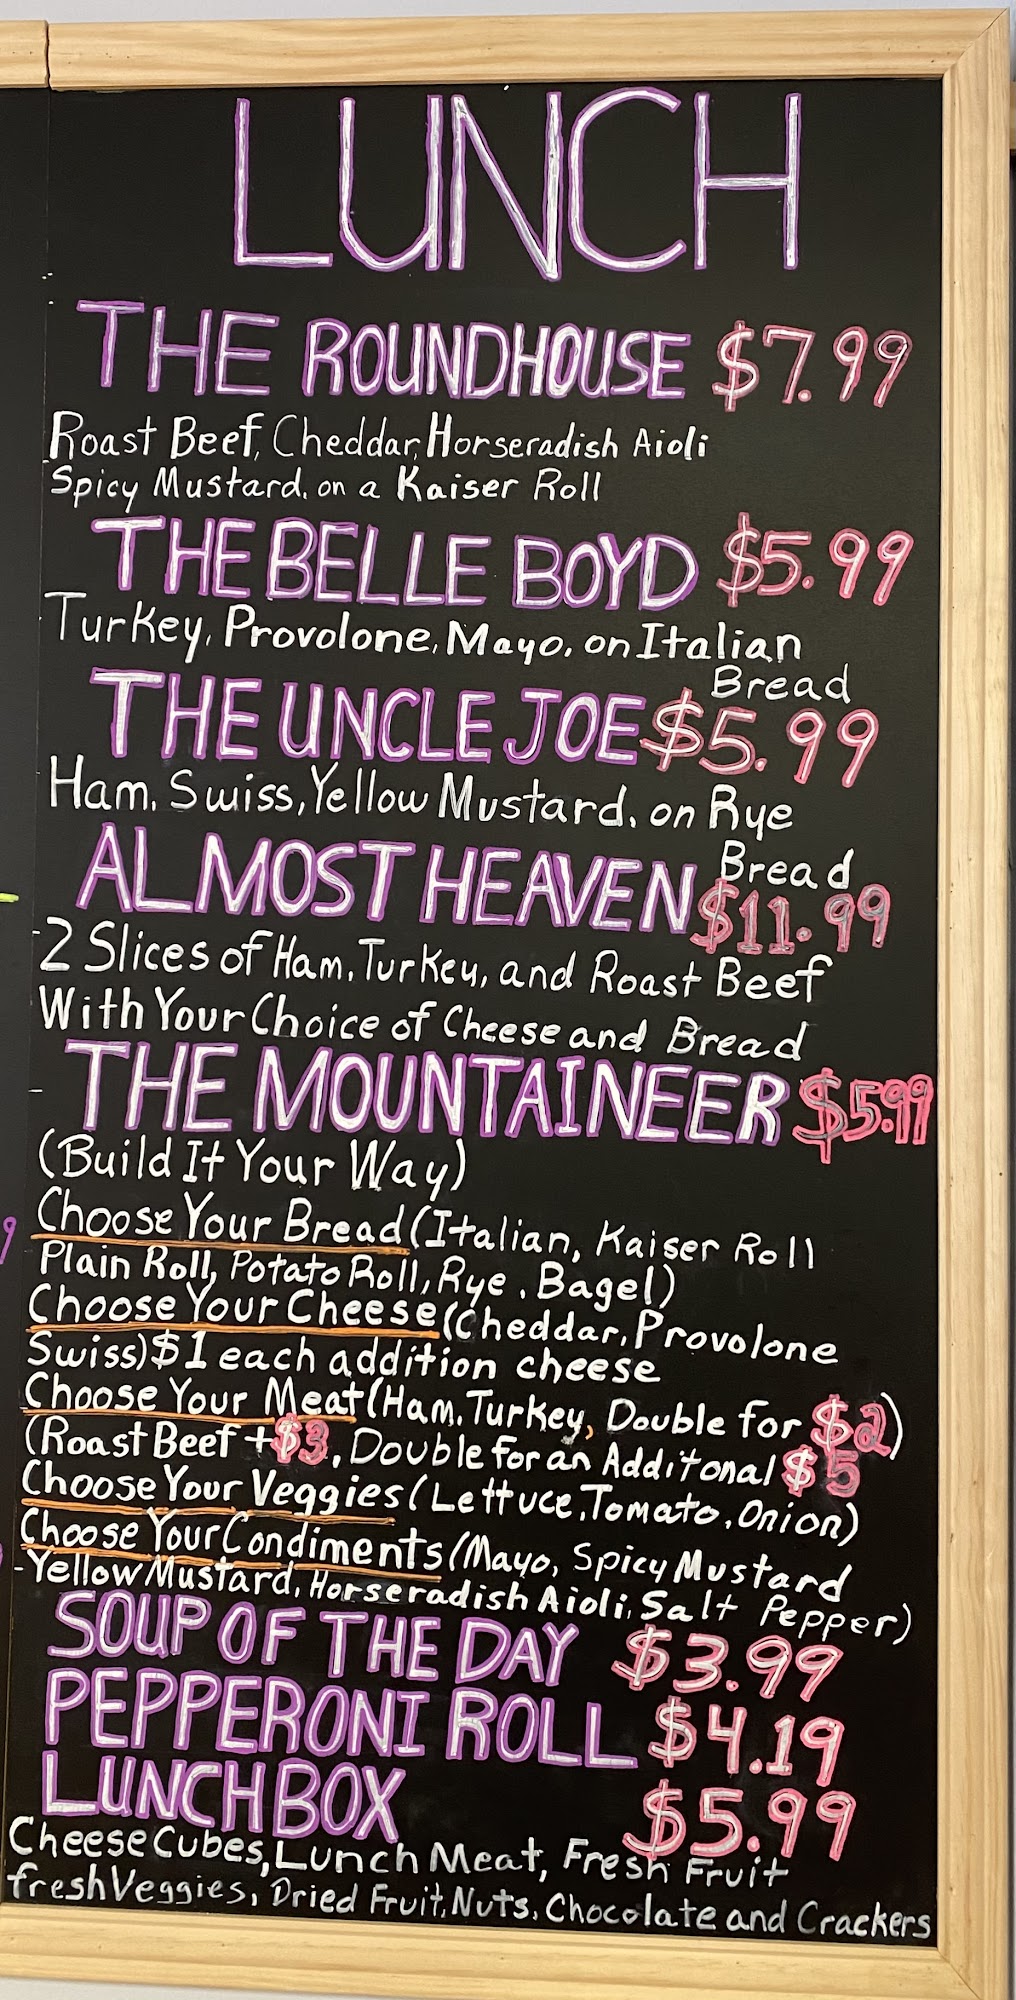 LUNCH
THE ROUNDHOUSE $7.99
Roast Beef, Cheddar, Horseradish Aioli
Spicy Mustard, on a Kaiser Roll
THE BELLE BOYD $5.99
Turkey, Provolone, Mayo, on Italian
Bread
THE UNCLE JOE $5.99
Ham, Swiss, Yellow Mustard, on Rye
Bread
ALMOST HEAVEN $11.99
2 Slices of Ham, Turkey, and Roast Beef
With Your Choice of Cheese and Bread
THE MOUNTAINEER $5.99
(Build It Your Way)
Choose Your Bread (Italian, Kaiser Roll
Plain Roll, Potato Roll, Rye, Bagel)
Choose Your Cheese (Cheddar, Provolone
Swiss) $1 each addition cheese
Choose Your Meat (Ham, Turkey, Double for $2)
(Roast Beef + $3, Double for an Additonal $5
Choose Your Veggies (Lettuce, Tomato, Onion)
Choose Your Condiments (Mayo, Spicy Mustard
-Yellow Mustard, Horseradish Aioli, Salt Pepper)
SOUP OF THE DAY $3.99
PEPPERONI ROLL $4.19
LUNCHBOX $5.99
Cheese Cubes, Lunch Meat, Fresh Fruit
fresh Veggies, Dried Fruit, Nuts, Chocolate and Crackers